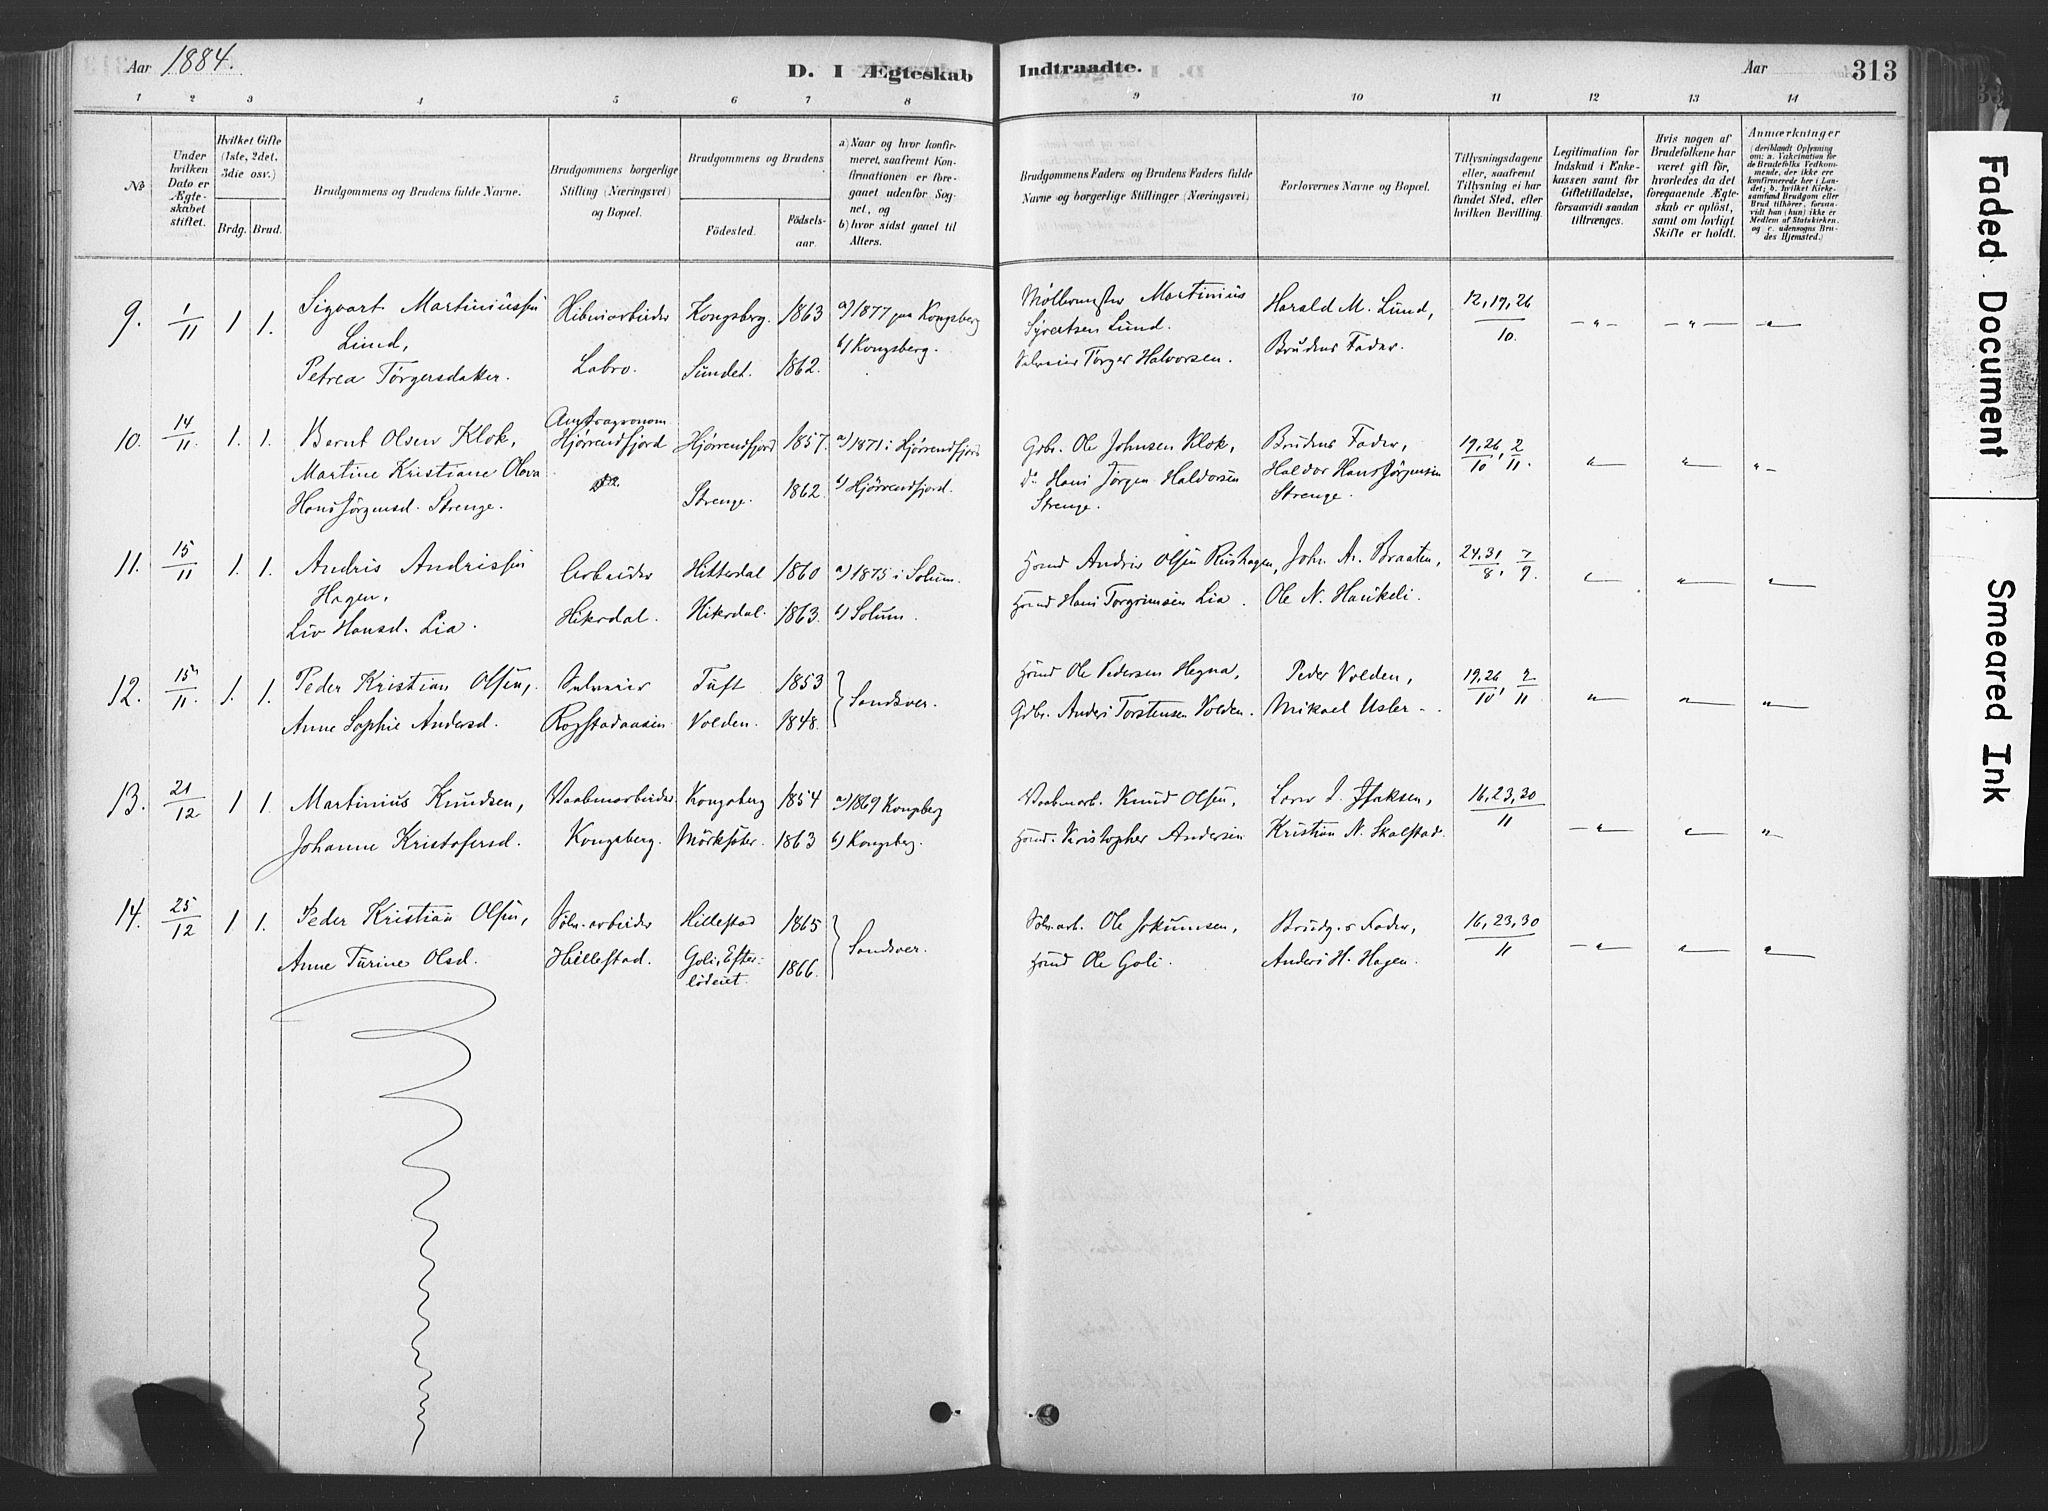 Aar 1884.
D. I Ægteskab
Indtraadte.
Aar
313
1 2 3 4 5 6 7 8 9 10 11 12 13 14
№
Under hvilken Dato er Ægteskabet stiftet.
Hvilket Gifte (1ste, 2det, 3die osv.)
Brdg. Brud.
Brudgommens og Brudens fulde Navne.
Brudgommens borgerlige Stilling (Næringsvei) og Bopæl.
Brudgommens og Brudens
Födested.
Födselsaar.
a) Naar og hvor konfirmeret, saafremt Konfirmationen er foregaaet udenfor Sognet, og
b) hvor sidst gaaet til Alters.
Brudgommens Faders og Brudens Faders fulde Navne og borgerlige Stillinger (Næringsvei)
Forlovernes Navne og Bopæl.
Tillysningsdagene eller, saafremt Tillysning ei har fundet Sted, efter hvilken Bevilling.
Legitimation for Indskud i Enkekassen samt for Giftetilladelse, forsaavidt saadan tiltrænges.
Hvis nogen af Brudefolkene har været gift för, hvorledes da det foregaaende Ægteskab er oplöst, samt om lovligt Skifte er holdt.
Anmærkninger (deriblandt Oplysning om: a. Vakcination for de Brudefolks Vedkommende, der ikke ere konfirmerede her i Landet; b. hvilket Kirkesamfund Brudgom eller Brud tilhörer, forsaavidt han (hun) ikke er Medlem af Statskirken, og c. udensogns Brudes Hjemsted.)
9. 1/11 1 1. Sigvart Martiniussen Lund, Petrea Törgersdatter. Labro. Kongsberg. Sundet. 1863 1862. a) 1877 paa Kongsberg b) Kongsberg. Martinius Syvertsen Lund. Törger Halvorsen. Harald M. Lund, Brudens Fader. 12, 19, 26/10.
10. 14/11. 1. 1. Bernt Olsen Klok, Martine Kristiane Olava Hans Jörgensd. Strenge. Amtsagronom Hjörrendfjord Hjörrendfjord Strenge. 1857. 1862. a) 1871 i Hjörrendfjord b) Hjörrendfjord. Gdbr. Ole Johnsen Klok, do Hans Jörgen Haldorsen Strenge. Brudens Fader, Haldor Hans Jörgensen Strenge. 19, 26/10, 2/11.
11. 15/11 1. 1. Andris Andrissen Hagen, Liv Hansd. Lia. Arbeider Hiterdal. Hitterdal Hiterdal. 1860 1863. a) 1875 i Solum. b) Solum. Hmd Andris Olsen Rushagen, Hmd Hans Torgrimsen Lia. Joh. A. Braaten, Ole N. Haukeli. 24, 31/8, 7/9.
12. 15/11. 1. 1. Peder Kristian Olsen, Anne Sophie Andersd. Rogstadaasen Tuft Volden. 1853 1848. Sandsver. Hmd Ole Pedersen Hegna, Gdbr. Anders Torstensen Volden. Peder Volden, Mikael Usler. 19, 26/10, 2/11
13. 21/12 1 1. Martinius Knudsen, Johanne Kristofersd. Vaabenarbeider Kongsberg. Kongsberg Mörksäter. 1854 1863 a) 1869 Kongsberg b) Kongsberg. Vaabenarb. Knud Olsen, Hmd. Kristopher Andersen Lars I. Isaksen, Kristian N. Skalstad. 16, 23, 30/11
14. 25/12 1 1. Peder Kristian Olsen, Anne Turine Olsd. Sölv-arbeider Hillestad. Hillestad Goli, Efterlödeiet. 1865 1866. Sandsver. Sölvarb. Ole Jokumsen, Hmd Ole Goli. Brudg.s Fader, Anders H. Hagen. 16, 23, 30/11
Faded Document
Smeared Ink